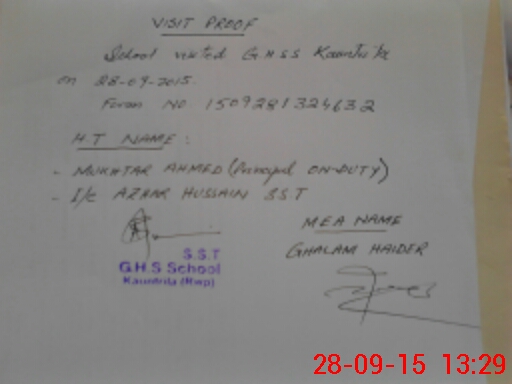 VISIT PROOF
School visited G.H.S.S
on 28-09-2015.
Foram No 1509281324632
H.T NAME:
- MUKHTAR AHMED (Principal ON-DUTY)
- I/C AZHAR HUSSAIN S.S.T
MEA NAME
GHALAM HAIDER
S.S.T
G.H.S School
Kauntrila (Rwp)
28-09-15 13:29